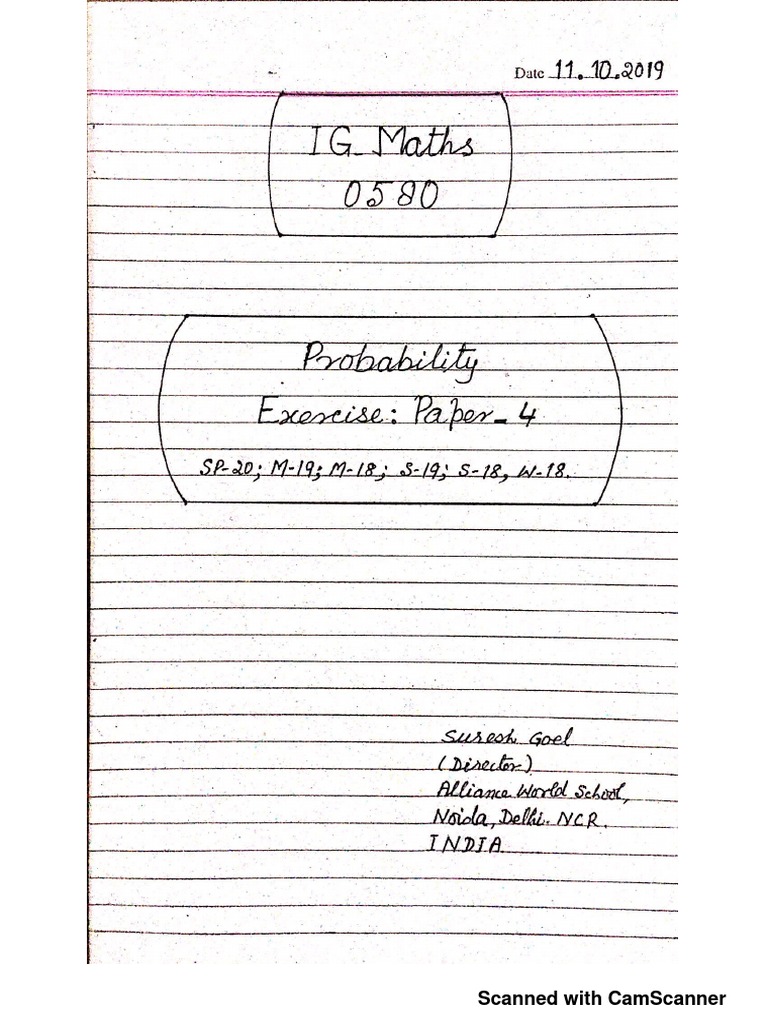 Date 11.10.2019
IG Maths
0580
Probability
Exercise: Paper-4
SP-20; M-19; M-18; S-19; S-18, W-18.
Suresh Goel
(Director)
Alliance World School,
Noida, Delhi. NCR.
INDIA
Scanned with CamScanner